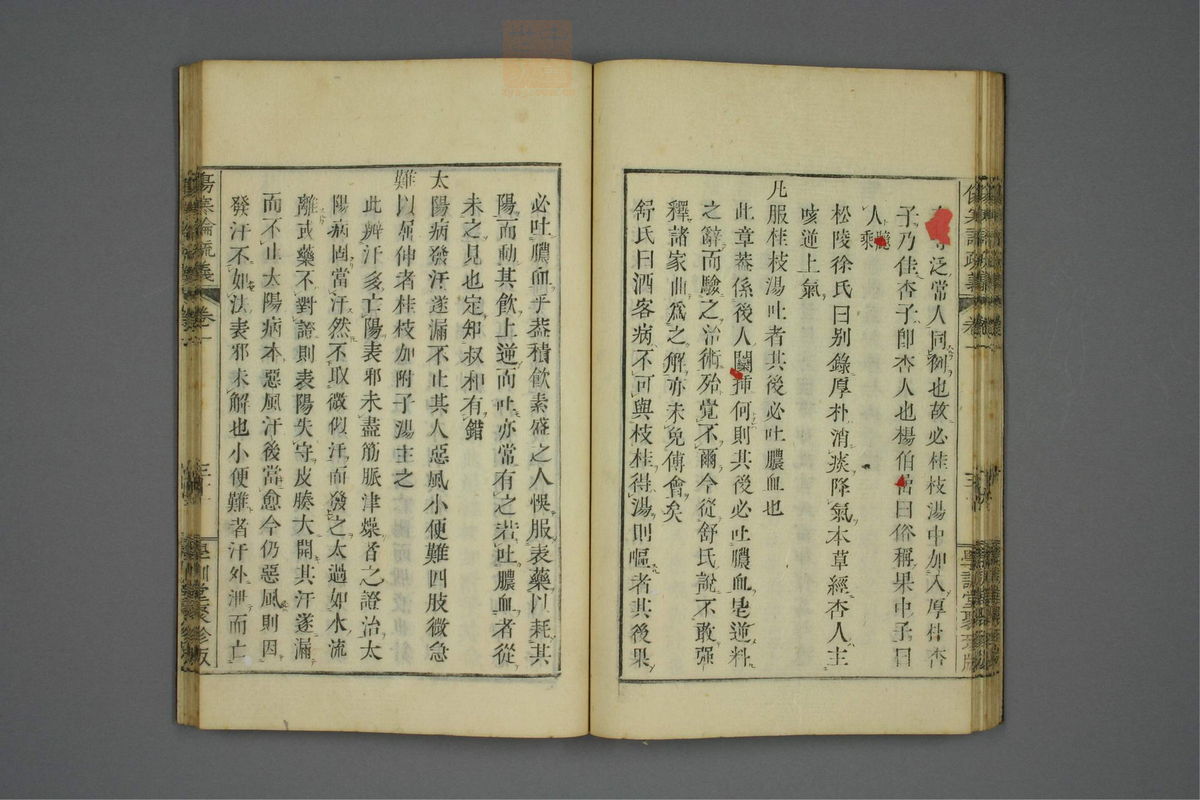 泛常人同例也故必桂枝湯中加入厚朴杏
子乃佳杏子卽杏人也楊伯嵒曰俗稱果中子曰
人乘
松陵徐氏曰別錄厚朴消痰降氣本草經杏人主
咳逆上氣
凡服桂枝湯吐者其後必吐膿血也
此章蓋係後人闌揷何則其後必吐膿血是逆料
之辭而驗之治術殆覺不爾今從舒氏說不敢强
釋諸家曲爲之解亦未免傅會矣
舒氏曰酒客病不可與枝桂得湯則嘔者其後果
必吐膿血乎蓋積飮素盛之人悞服表藥以耗其
陽而動其飮上逆而吐亦常有之若吐膿血者從
未之見也定知叔和有錯
太陽病發汗遂漏不止其人惡風小便難四肢微急
難以屈伸者桂枝加附子湯主之
此辨汗多亡陽表邪未盡筋脈津燥者之證治太
陽病固當汗然不取微似汗而發之太過如水流
離或藥不對證則表陽失守皮腠大開其汗遂漏
而不止太陽病本惡風汗後當愈今仍惡風則因
發汗不如法表邪未解也小便難者汗外泄而亡
傷寒論疏義 卷一
學訓堂聚珍版